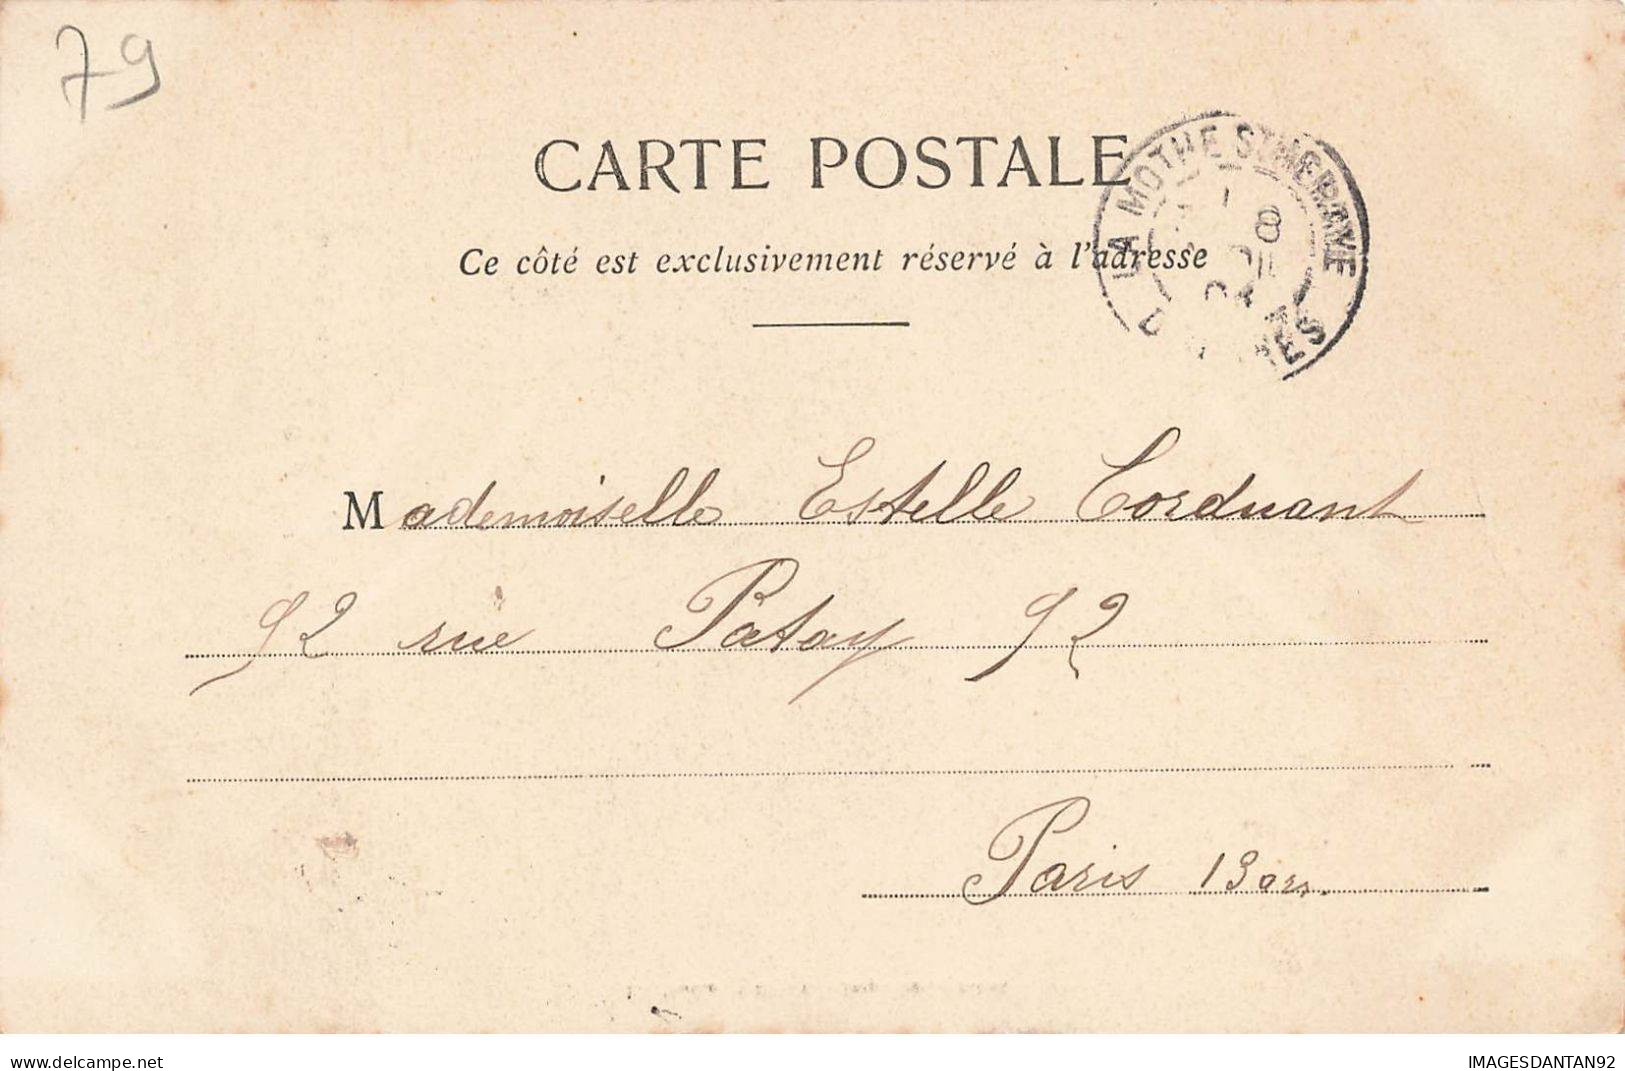 79
CARTE POSTALE
LA MOTHE ST HERAYE
8
Ce côté est exclusivement réservé à l'adresse
Mademoiselle Estelle Corduant
92 rue Patay 92
Paris 13 arr.
www.delcampe.net
IMAGESDANTAN92